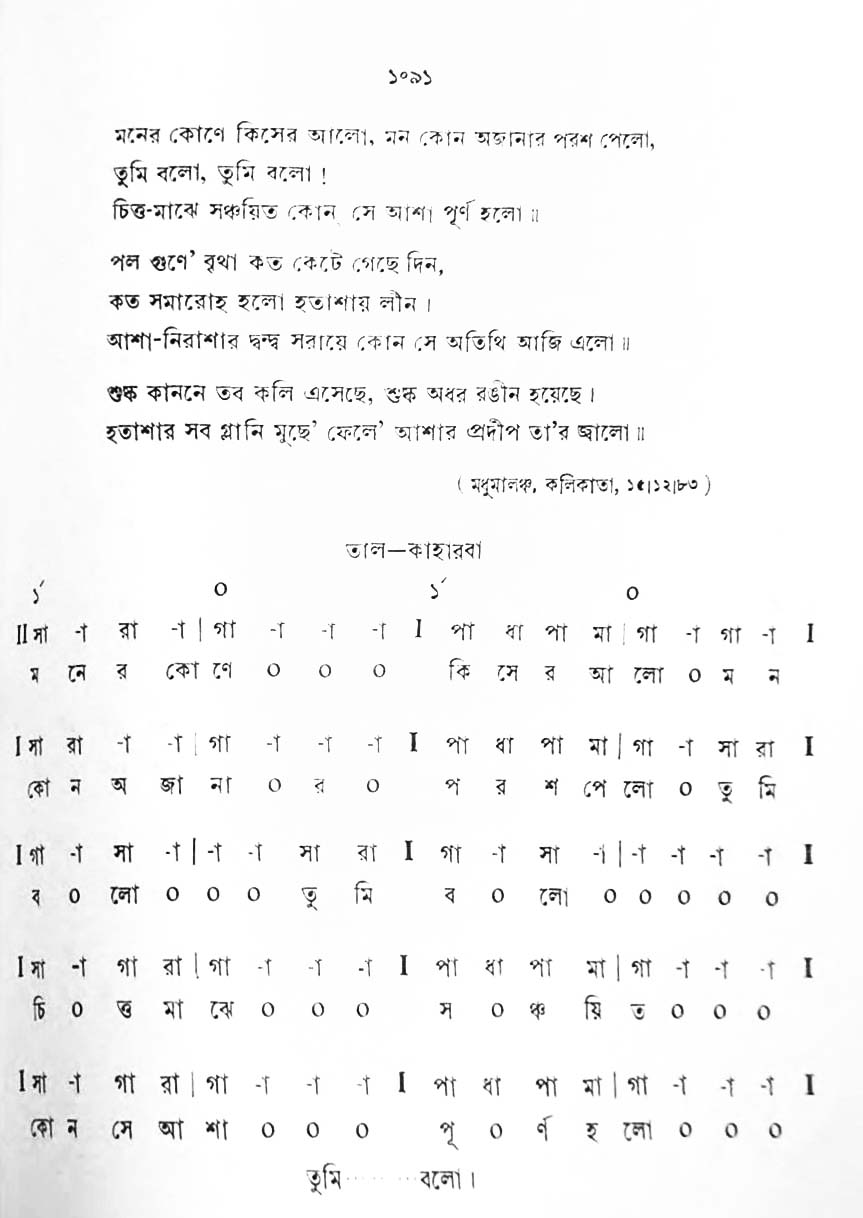 ১০৯১
মনের কোণে কিসের আলো, মন কোন অজানার পরশ পেলো,
তুমি বলো, তুমি বলো !
চিত্ত-মাঝে সঞ্চয়িত কোন্ সে আশা পূর্ণ হলো ॥
পল গুণে’ বৃথা কত কেটে গেছে দিন,
কত সমারোহ হলো হতাশায় লীন ।
আশা-নিরাশার দ্বন্দ্ব সরায়ে কোন সে অতিথি আজি এলো ॥
শুষ্ক কাননে তব কলি এসেছে, শুষ্ক অধর রঙীন হয়েছে ।
হতাশার সব গ্লানি মুছে’ ফেলে’ আশার প্রদীপ তা’র জ্বালো ॥
( মধুমালঞ্চ, কলিকাতা, ১৫।১২।৮৩ )
তাল—কাহারবা
১´ ০ ১´ ০
II সা -া রা -া | গা -া -া -া I পা ধা পা মা | গা -া গা -া I
ম নে র কো ণে ০ ০ ০ কি সে র আ লো ০ ম ন
I সা রা -া -া | গা -া -া -া I পা ধা পা মা | গা -া সা রা I
কো ন অ জা না ০ র ০ প র শ পে লো ০ তু মি
I গা -া সা -া | -া -া সা রা I গা -া সা -া | -া -া -া -া I
ব ০ লো ০ ০ ০ তু মি ব ০ লো ০ ০ ০ ০ ০
I সা -া গা রা | গা -া -া -া I পা ধা পা মা | গা -া -া -া I
চি ০ ত্ত মা ঝে ০ ০ ০ স ০ ঞ্চ য়ি ত ০ ০ ০
I সা -া গা রা | গা -া -া -া I পা ধা পা মা | গা -া -া -া I
কো ন সে আ শা ০ ০ ০ পূ ০ র্ণ হ লো ০ ০ ০
তুমি········বলো ।